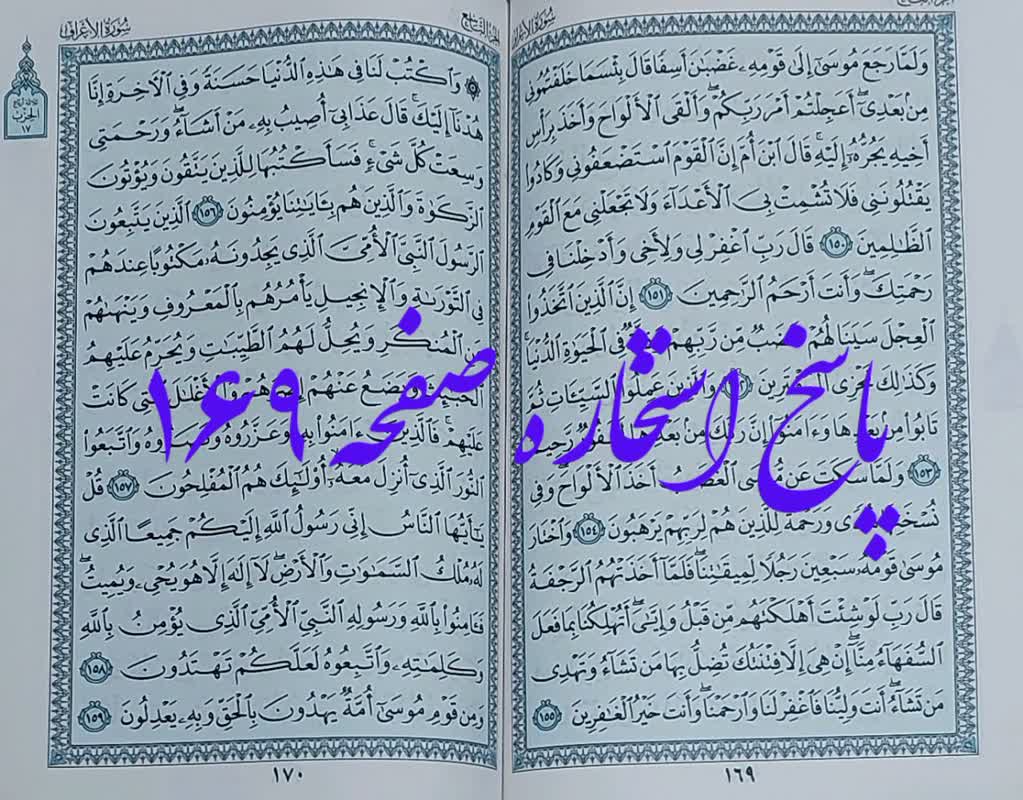 سُورَةُ الأَعْرَافِ
وَلَمَّا رَجَعَ مُوسَىٰٓ إِلَىٰ قَوْمِهِۦ غَضْبَٰنَ أَسِفًا قَالَ بِئْسَمَا خَلَفْتُمُونِي
مِنۢ بَعْدِيٓ أَعَجِلْتُمْ أَمْرَ رَبِّكُمْ وَأَلْقَى ٱلْأَلْوَاحَ وَأَخَذَ بِرَأْسِ
أَخِيهِ يَجُرُّهُۥٓ إِلَيْهِ قَالَ ٱبْنَ أُمَّ إِنَّ ٱلْقَوْمَ ٱسْتَضْعَفُونِي وَكَادُوا۟
يَقْتُلُونَنِي فَلَا تُشْمِتْ بِيَ ٱلْأَعْدَآءَ وَلَا تَجْعَلْنِي مَعَ ٱلْقَوْمِ
ٱلظَّٰلِمِينَ ١٥٠ قَالَ رَبِّ ٱغْفِرْ لِي وَلِأَخِي وَأَدْخِلْنَا فِي
رَحْمَتِكَ وَأَنتَ أَرْحَمُ ٱلرَّٰحِمِينَ ١٥١ إِنَّ ٱلَّذِينَ ٱتَّخَذُوا۟
ٱلْعِجْلَ سَيَنَالُهُمْ غَضَبٌ مِّن رَّبِّهِمْ وَذِلَّةٌ فِي ٱلْحَيَوٰةِ ٱلدُّنْيَا
وَكَذَٰلِكَ نَجْزِي ٱلْمُفْتَرِينَ ١٥٢ وَٱلَّذِينَ عَمِلُوا۟ ٱلسَّيِّـَٔاتِ ثُمَّ
تَابُوا۟ مِنۢ بَعْدِهَا وَءَامَنُوٓا۟ إِنَّ رَبَّكَ مِنۢ بَعْدِهَا لَغَفُورٌ رَّحِيمٌ
١٥٣ وَلَمَّا سَكَتَ عَن مُّوسَى ٱلْغَضَبُ أَخَذَ ٱلْأَلْوَاحَ وَفِي
نُسْخَتِهَا هُدًى وَرَحْمَةٌ لِّلَّذِينَ هُمْ لِرَبِّهِمْ يَرْهَبُونَ ١٥٤ وَٱخْتَارَ
مُوسَىٰ قَوْمَهُۥ سَبْعِينَ رَجُلًا لِّمِيقَٰتِنَا فَلَمَّآ أَخَذَتْهُمُ ٱلرَّجْفَةُ
قَالَ رَبِّ لَوْ شِئْتَ أَهْلَكْتَهُم مِّن قَبْلُ وَإِيَّٰيَ أَتُهْلِكُنَا بِمَا فَعَلَ
ٱلسُّفَهَآءُ مِنَّآ إِنْ هِيَ إِلَّا فِتْنَتُكَ تُضِلُّ بِهَا مَن تَشَآءُ وَتَهْدِي
مَن تَشَآءُ أَنتَ وَلِيُّنَا فَٱغْفِرْ لَنَا وَٱرْحَمْنَا وَأَنتَ خَيْرُ ٱلْغَٰفِرِينَ ١٥٥
١٦٩
سُورَةُ الأَعْرَافِ
الحِزْب
١٧
۞ وَٱكْتُبْ لَنَا فِي هَٰذِهِ ٱلدُّنْيَا حَسَنَةً وَفِي ٱلْءَاخِرَةِ إِنَّا
هُدْنَآ إِلَيْكَ قَالَ عَذَابِيٓ أُصِيبُ بِهِۦ مَنْ أَشَآءُ وَرَحْمَتِي
وَسِعَتْ كُلَّ شَيْءٍ فَسَأَكْتُبُهَا لِلَّذِينَ يَتَّقُونَ وَيُؤْتُونَ
ٱلزَّكَوٰةَ وَٱلَّذِينَ هُم بِـَٔايَٰتِنَا يُؤْمِنُونَ ١٥٦ ٱلَّذِينَ يَتَّبِعُونَ
ٱلرَّسُولَ ٱلنَّبِيَّ ٱلْأُمِّيَّ ٱلَّذِي يَجِدُونَهُۥ مَكْتُوبًا عِندَهُمْ
فِي ٱلتَّوْرَىٰةِ وَٱلْإِنجِيلِ يَأْمُرُهُم بِٱلْمَعْرُوفِ وَيَنْهَىٰهُمْ
عَنِ ٱلْمُنكَرِ وَيُحِلُّ لَهُمُ ٱلطَّيِّبَٰتِ وَيُحَرِّمُ عَلَيْهِمُ
ٱلْخَبَٰٓئِثَ وَيَضَعُ عَنْهُمْ إِصْرَهُمْ وَٱلْأَغْلَٰلَ ٱلَّتِي كَانَتْ
عَلَيْهِمْ فَٱلَّذِينَ ءَامَنُوا۟ بِهِۦ وَعَزَّرُوهُ وَنَصَرُوهُ وَٱتَّبَعُوا۟
ٱلنُّورَ ٱلَّذِيٓ أُنزِلَ مَعَهُۥٓ أُو۟لَٰٓئِكَ هُمُ ٱلْمُفْلِحُونَ ١٥٧ قُلْ
يَٰٓأَيُّهَا ٱلنَّاسُ إِنِّي رَسُولُ ٱللَّهِ إِلَيْكُمْ جَمِيعًا ٱلَّذِي
لَهُۥ مُلْكُ ٱلسَّمَٰوَٰتِ وَٱلْأَرْضِ لَآ إِلَٰهَ إِلَّا هُوَ يُحْيِۦ وَيُمِيتُ
فَـَٔامِنُوا۟ بِٱللَّهِ وَرَسُولِهِ ٱلنَّبِيِّ ٱلْأُمِّيِّ ٱلَّذِي يُؤْمِنُ بِٱللَّهِ
وَكَلِمَٰتِهِۦ وَٱتَّبِعُوهُ لَعَلَّكُمْ تَهْتَدُونَ ١٥٨
وَمِن قَوْمِ مُوسَىٰٓ أُمَّةٌ يَهْدُونَ بِٱلْحَقِّ وَبِهِۦ يَعْدِلُونَ ١٥٩
١٧٠
پاسخ استخاره صفحه ۱۶۹